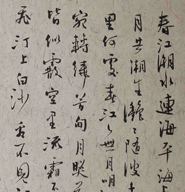 春江潮水連海平海上
月共潮生灩〻隨波
里何處春江無月明
宛轉繞芳甸月照
皆似霰空里流霜不
飛汀上白沙看不見